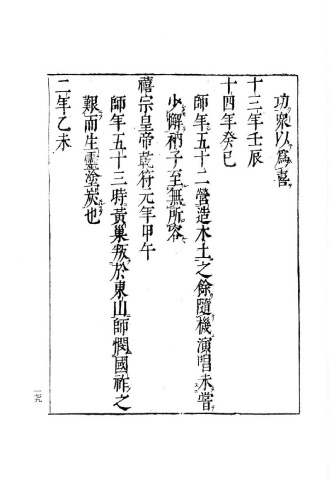 功衆以爲喜
十三年壬辰
十四年癸巳
師年五十二營造水土之餘隨機演唱未嘗
少懈衲子至無所容
禧宗皇帝乾符元年甲午
師年五十三時黃巢叛於東山師憫國祚之
艱而生靈塗炭也
二年乙未
一六九